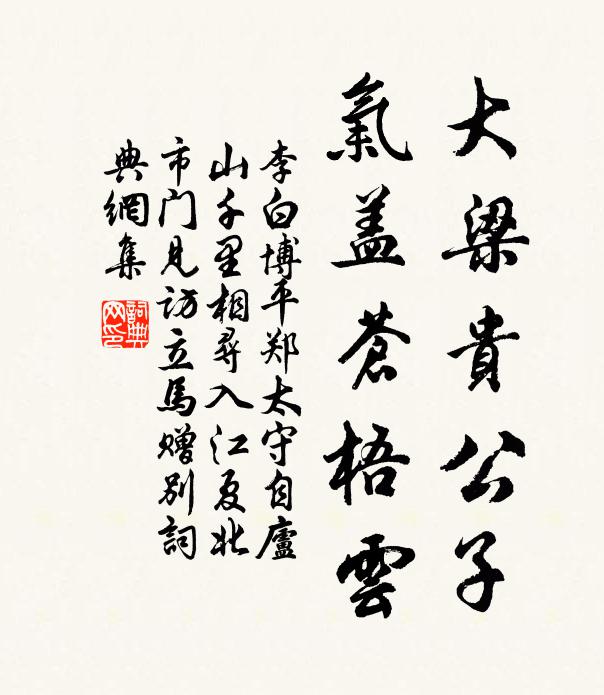 大梁貴公子
氣盖蒼梧雲
李白博平郑太守自廬
山千里相尋入江夏北
市门見访立馬赠别詞
典網集
詞典網印